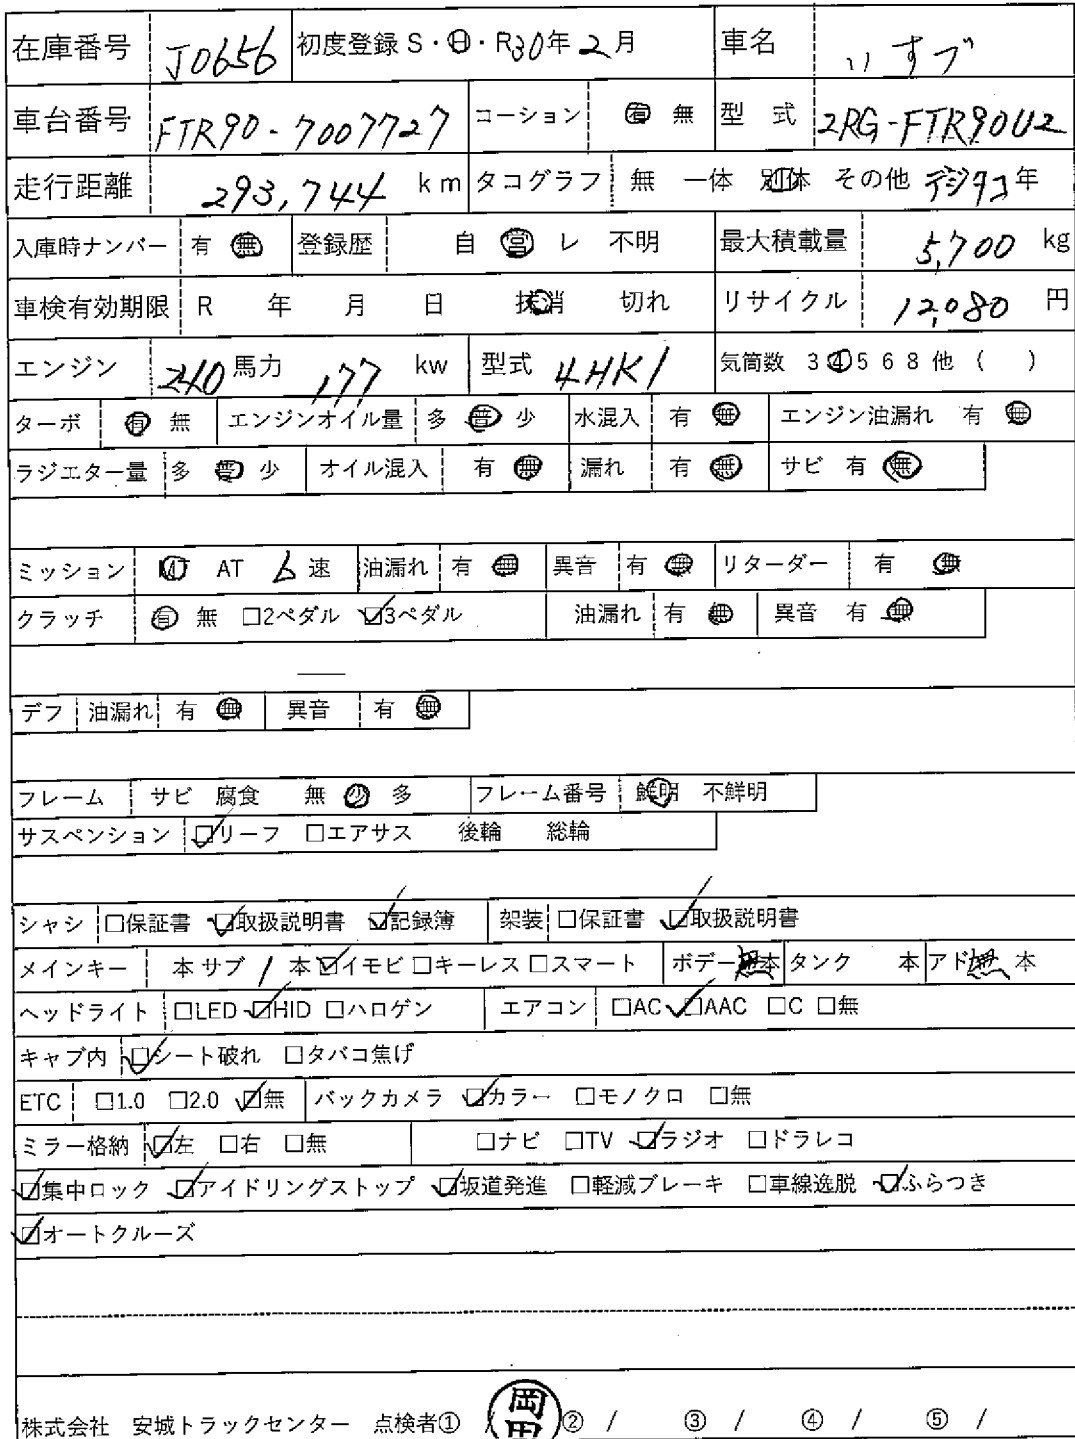 在庫番号 J0656 初度登録 S・H・R30年2月 車名 いすゞ
車台番号 FTR90-7007727 コーション 有 無 型 式 2RG-FTR90U2
走行距離 293,744 km タコグラフ 無 一体 別体 その他 デジタコ 年
入庫時ナンバー 有 無 登録歴 自 営 レ 不明 最大積載量 5,700 kg
車検有効期限 R 年 月 日 抹消 切れ リサイクル 12,080 円
エンジン 240 馬力 177 kw 型式 4HK1 気筒数 3 4 5 6 8 他 ( )
ターボ 有 無 エンジンオイル量 多 普 少 水混入 有 無 エンジン油漏れ 有 無
ラジエター量 多 普 少 オイル混入 有 無 漏れ 有 無 サビ 有 無
ミッション MT AT 6 速 油漏れ 有 無 異音 有 無 リターダー 有 無
クラッチ 有 無 □2ペダル ☑3ペダル 油漏れ 有 無 異音 有 無
デフ 油漏れ 有 無 異音 有 無
フレーム サビ 腐食 無 少 多 フレーム番号 鮮明 不鮮明
サスペンション ☑リーフ □エアサス 後輪 総輪
シャシ □保証書 ☑取扱説明書 ☑記録簿 架装 □保証書 ☑取扱説明書
メインキー 本 サブ 1 本 ☑イモビ □キーレス □スマート ボデー 無 本 タンク 本 アド 無 本
ヘッドライト □LED ☑HID □ハロゲン エアコン □AC ☑AAC □C □無
キャブ内 ☑シート破れ □タバコ焦げ
ETC □1.0 □2.0 ☑無 バックカメラ ☑カラー □モノクロ □無
ミラー格納 ☑左 □右 □無 □ナビ □TV ☑ラジオ □ドラレコ
☑集中ロック ☑アイドリングストップ ☑坂道発進 □軽減ブレーキ □車線逸脱 ☑ふらつき
☑オートクルーズ
株式会社 安城トラックセンター 点検者① / 岡田 ② / ③ / ④ / ⑤ /